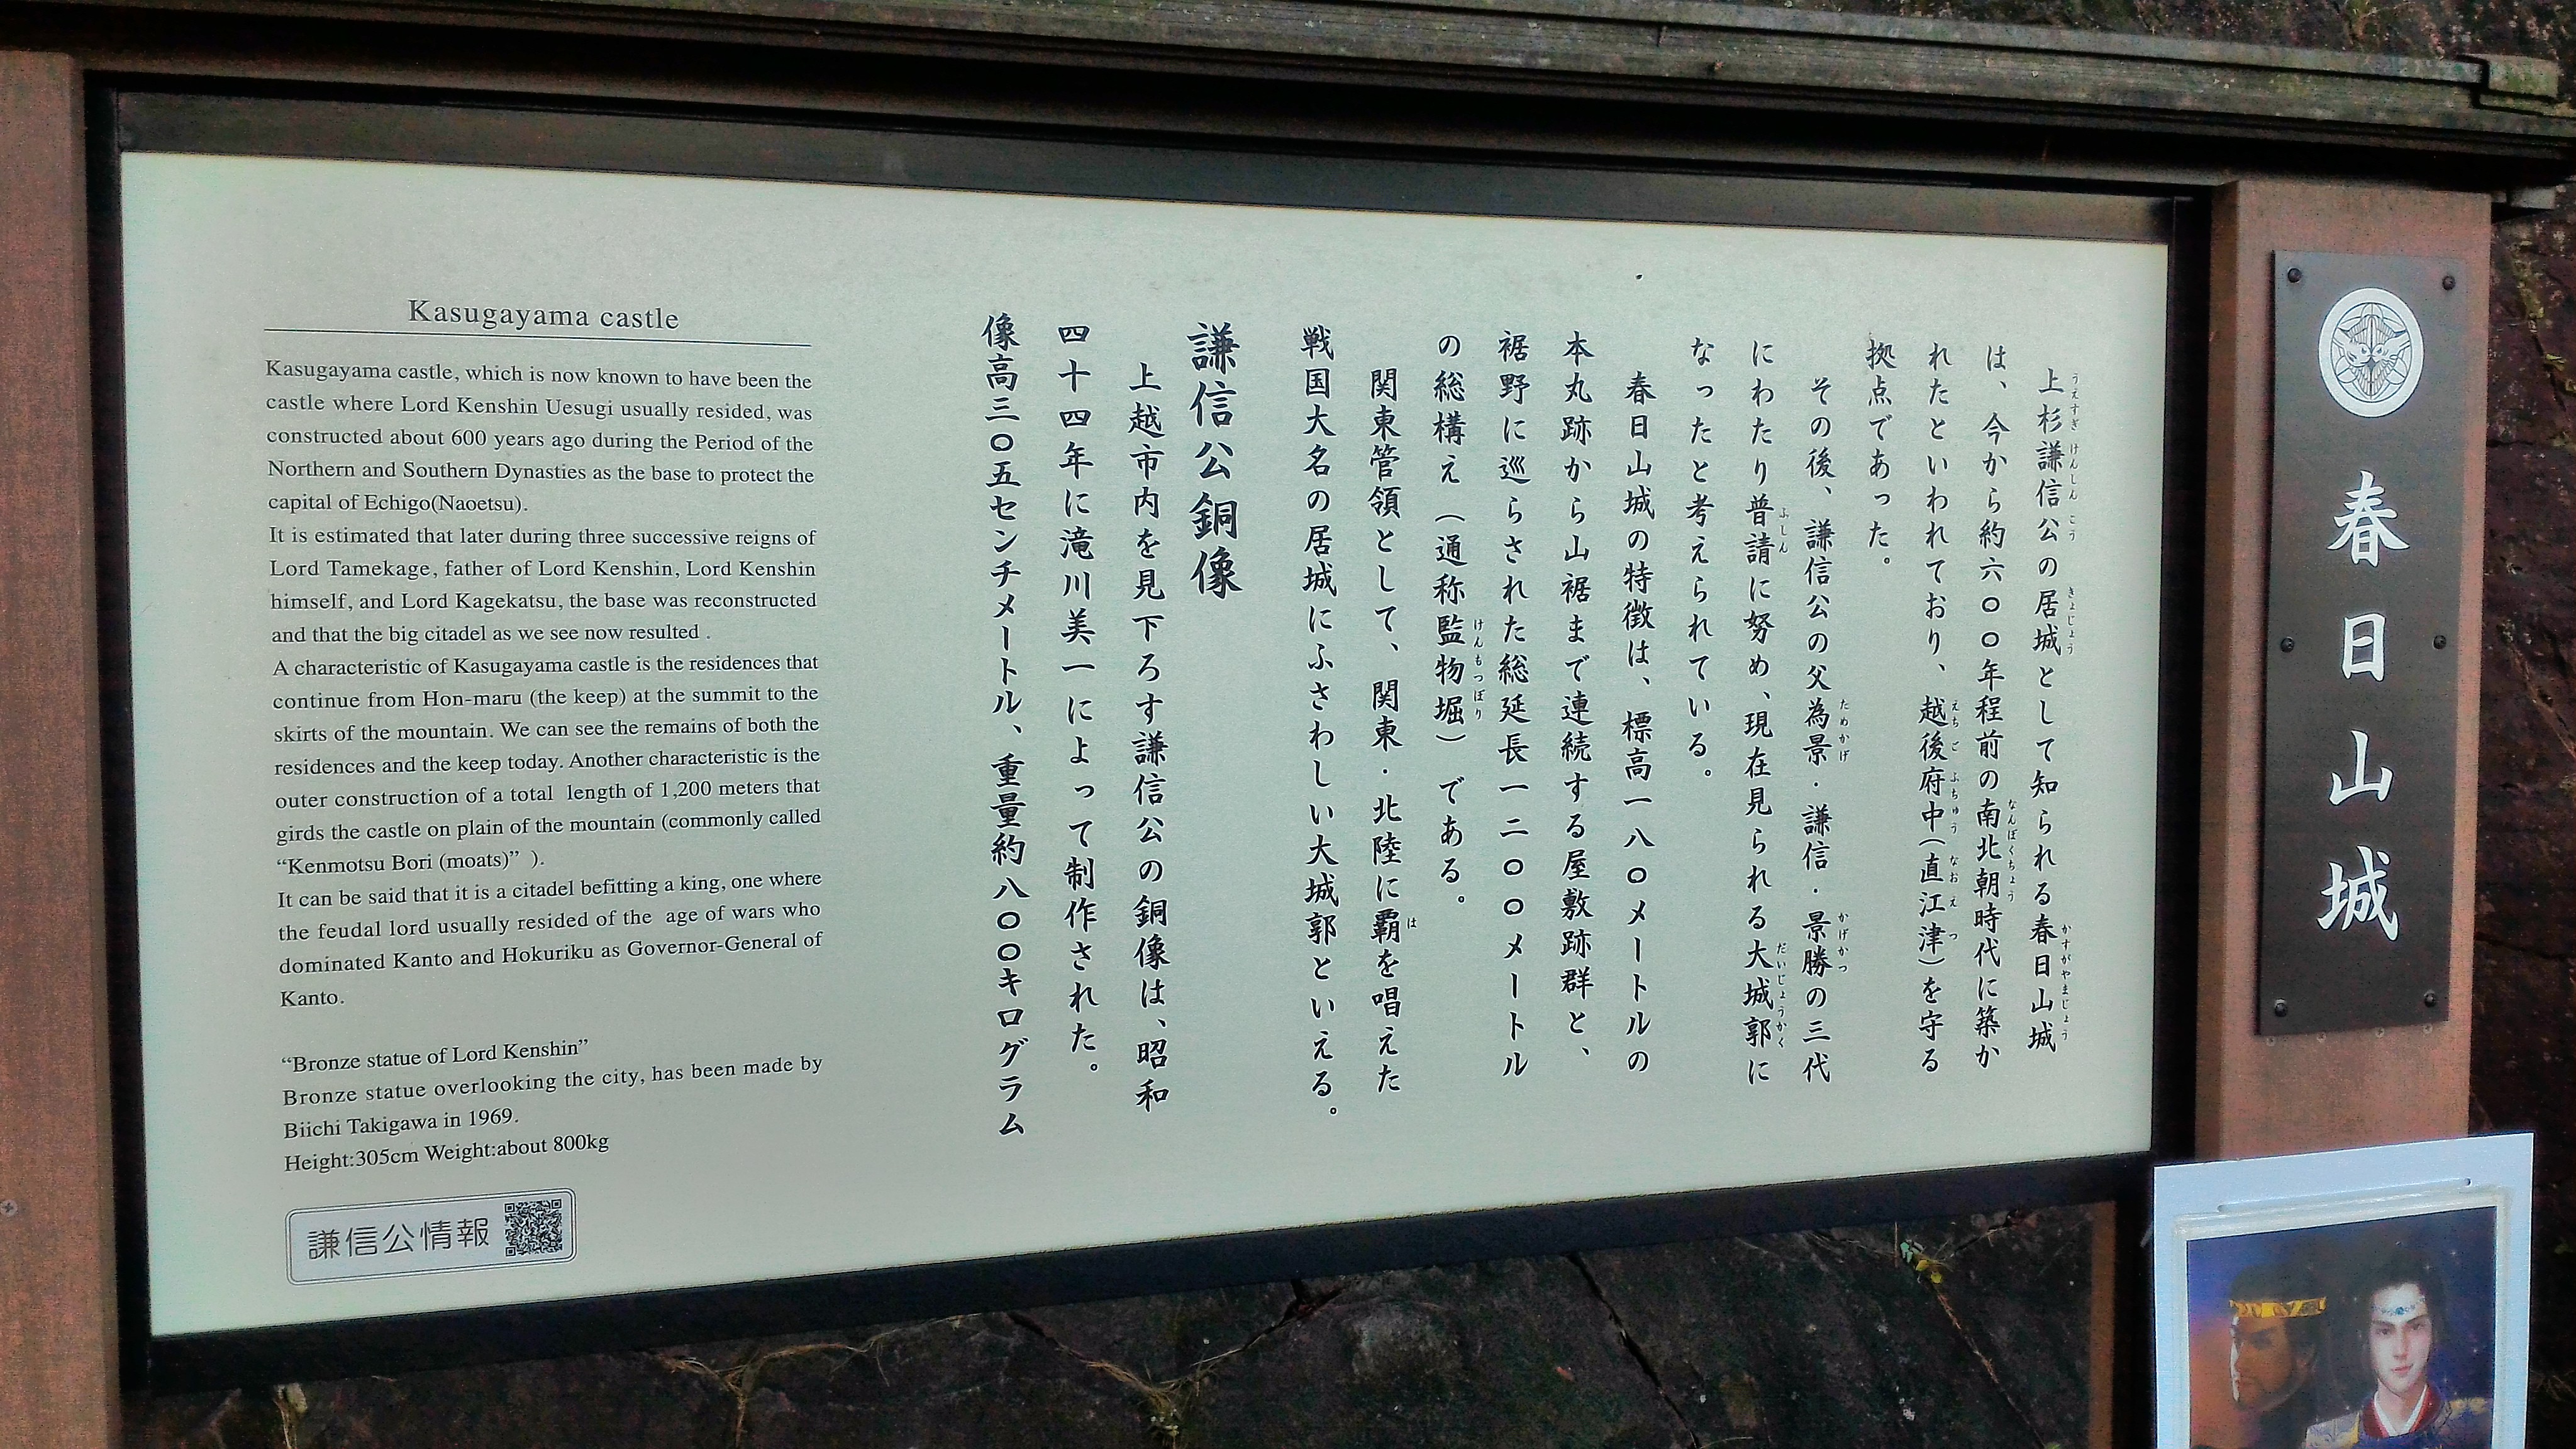 春日山城
上杉謙信公の居城として知られる春日山城
は、今から約六〇〇年程前の南北朝時代に築か
れたといわれており、越後府中(直江津)を守る
拠点であった。
その後、謙信公の父為景・謙信・景勝の三代
にわたり普請に努め、現在見られる大城郭に
なったと考えられている。
春日山城の特徴は、標高一八〇メートルの
本丸跡から山裾まで連続する屋敷跡群と、
裾野に巡らされた総延長一二〇〇メートル
の総構え(通称監物堀)である。
関東管領として、関東・北陸に覇を唱えた
戦国大名の居城にふさわしい大城郭といえる。
謙信公銅像
上越市内を見下ろす謙信公の銅像は、昭和
四十四年に滝川美一によって制作された。
像高三〇五センチメートル、重量約八〇〇キログラム
Kasugayama castle
Kasugayama castle, which is now known to have been the
castle where Lord Kenshin Uesugi usually resided, was
constructed about 600 years ago during the Period of the
Northern and Southern Dynasties as the base to protect the
capital of Echigo(Naoetsu).
It is estimated that later during three successive reigns of
Lord Tamekage, father of Lord Kenshin, Lord Kenshin
himself, and Lord Kagekatsu, the base was reconstructed
and that the big citadel as we see now resulted .
A characteristic of Kasugayama castle is the residences that
continue from Hon-maru (the keep) at the summit to the
skirts of the mountain. We can see the remains of both the
residences and the keep today. Another characteristic is the
outer construction of a total length of 1,200 meters that
girds the castle on plain of the mountain (commonly called
“Kenmotsu Bori (moats)” ).
It can be said that it is a citadel befitting a king, one where
the feudal lord usually resided of the age of wars who
dominated Kanto and Hokuriku as Governor-General of
Kanto.
“Bronze statue of Lord Kenshin”
Bronze statue overlooking the city, has been made by
Biichi Takigawa in 1969.
Height:305cm Weight:about 800kg
謙信公情報